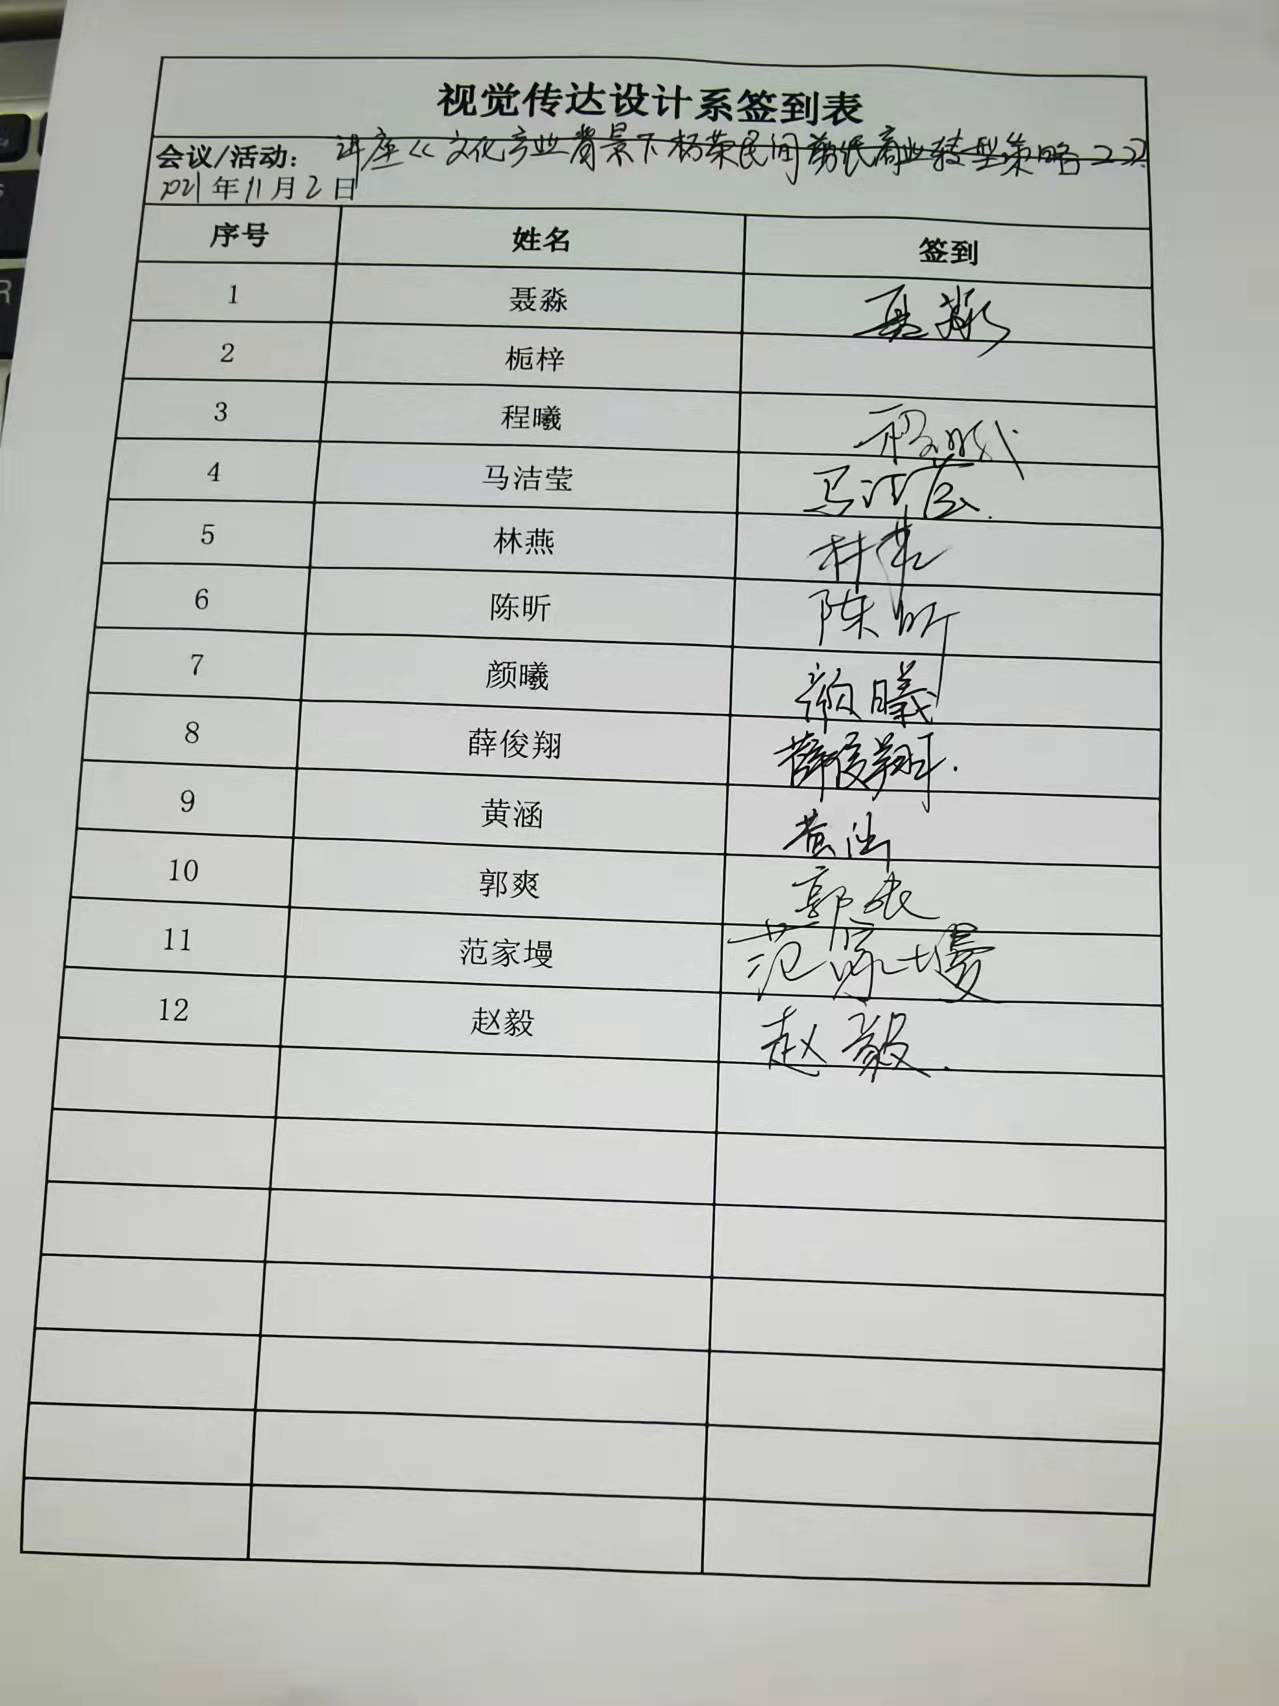 视觉传达设计系签到表
会议/活动：讲座《文化产业背景下 民间剪纸商业转型策略》
2021年11月2日
序号 姓名 签到
1 聂淼 聂淼
2 栀梓
3 程曦 程曦
4 马洁莹 马洁莹
5 林燕 林燕
6 陈昕 陈昕
7 颜曦 颜曦
8 薛俊翔 薛俊翔
9 黄涵 黄涵
10 郭爽 郭爽
11 范家墁 范家墁
12 赵毅 赵毅